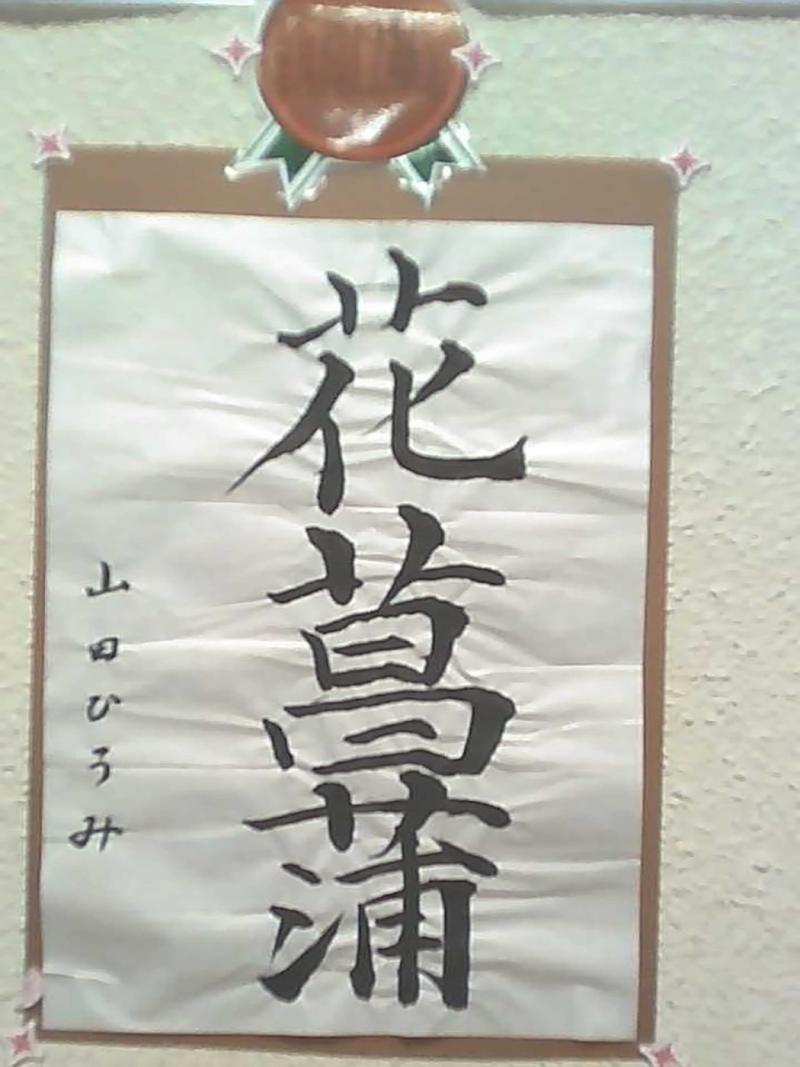 花菖蒲
山田ひろみ